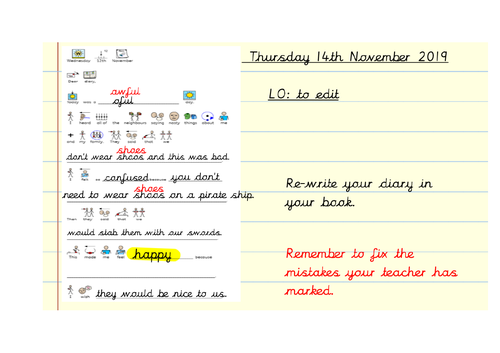 Wednesday 13th November
Thursday 14th November 2019
Dear diary,
LO: to edit
awful
Today was a oful day.
I heard all of the neighbours saying nasty things about me
and my family. They said that we
shoes
don't wear shoos and this was bad.
I felt confused...... you don't
shoes
need to wear shoos on a pirate ship.
Then they said that we
would stab them with our swords.
This made me feel happy because
I wish they would be nice to us.
Re-write your diary in
your book.
Remember to fix the
mistakes your teacher has
marked.